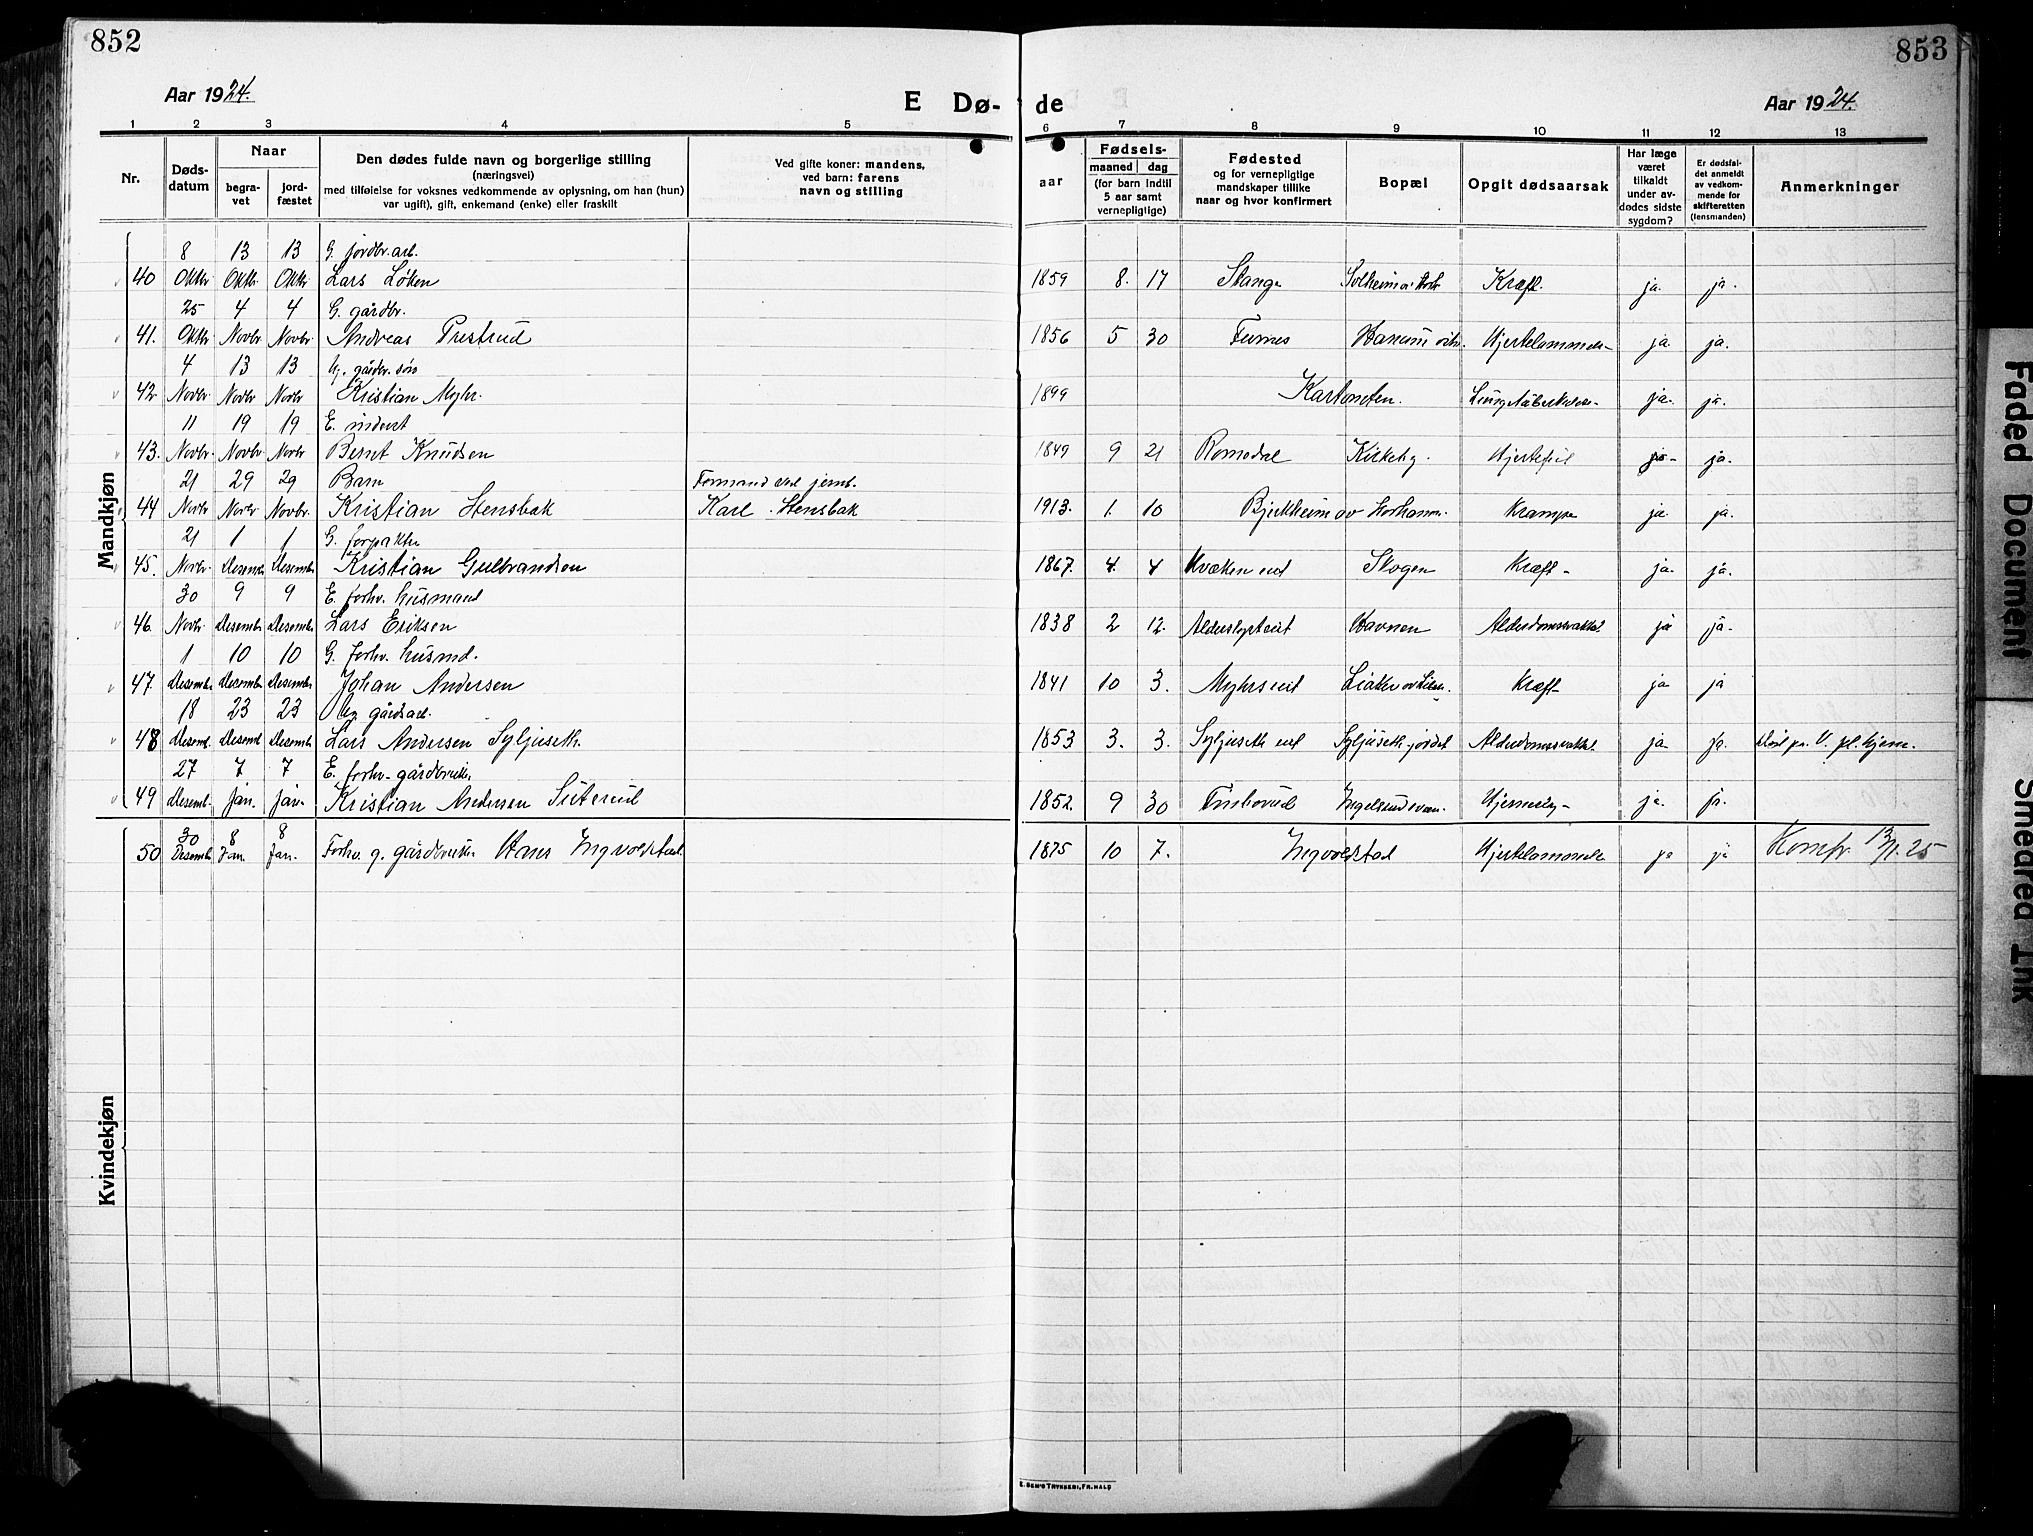 852
853
Aar 1924.
E Dø-
de
Aar 1924.
1 2 3 4 5 6 7 8 9 10 11 12 13
Nr.
Døds-
datum
Naar
begra-
vet
jord-
fæstet
Den dødes fulde navn og borgerlige stilling
(næringsvei)
med tilføielse for voksnes vedkommende av oplysning, om han (hun)
var ugift), gift, enkemand (enke) eller fraskilt
Ved gifte koner: mandens,
ved barn: farens
navn og stilling
aar
Fødsels-
maaned dag
(for barn indtil
5 aar samt
vernepligtige)
Fødested
og for vernepligtige
mandskaper tillike
naar og hvor konfirmert
Bopæl
Opgit dødsaarsak
Har læge
været
tilkaldt
under av-
dødes sidste
sygdom?
Er dødsfal-
det anmeldt
av vedkom-
mende for
skifteretten
(lensmanden)
Anmerkninger
Mandkjøn
8 13 13 G. jordbr. arb.
40 Oktbr. Oktbr. Oktbr. Lars Løken 1859 8. 17 Stange Kræft. ja. ja.
25 4 4 G. gårdbr.
41. Oktbr. Novbr. Novbr. Andreas Prestrud 1856 5 30 Furnes Hjertelammelse ja ja.
4 13 13 Ug. gårdbr. søn
42 Novbr. Novbr. Novbr. Kristian Myhr. 1899 Lungetuberkulose ja. ja.
11 19 19 E. inderst
43. Novbr. Novbr. Novbr. Bernt Knudsen 1849 9 21 Romedal Kirkeby. Hjertefeil ja ja.
21 29 29 Barn Formand ved jernb.
44 Novbr. Novbr. Novbr. Kristian Stensbak Karl Stensbak 1913. 1. 10 Bjerkheim av Krampe ja. ja.
21 1 1 G. forpakter
45. Novbr. Desembr. Desembr. Kristian Gulbrandsen 1867. 4. 4 Skogen Kræft ja. ja.
30 9 9 E. forhv. husmand
46. Novbr. Desembr. Desembr. Lars Eriksen 1838 2 12. ja ja.
1 10 10 G. forhv. husmd.
47. Desembr. Desembr. Desembr. Johan Andersen 1841 10 3. Kræft ja ja
18 23 23 Ug. gårdsarb.
48 Desemb. Desembr. Desembr. Lars Andersen Syljuseth. 1853 3. 3. Syljuseth Syljuseth-jordet ja. ja.
27 7 7 E. forhv. gårdbruker
49 Desemb. Jan. Jan. Kristian Andersen 1852. 9 30 ja. ja.
30 8 8
50 Desembr. Jan. Jan. Forhv. g. gårdbruker Hans Ingvoldstad. 1875 10 7. Ingvoldstad Hjertelammelse ja ja
Kvindekjøn
E. SEM'S TRYKKERI, FR.HALD
Faded Document
Smeared Ink